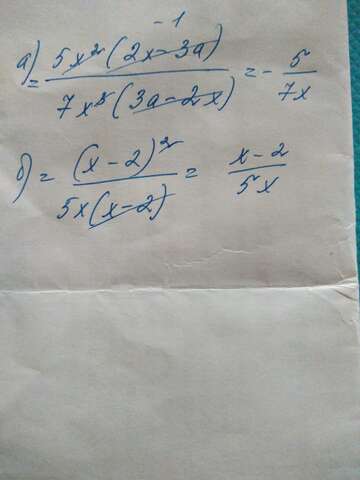 -1
а) = 5x²(2x-3a) / 7x³(3a-2x) = - 5 / 7x
б) = (x-2)² / 5x(x-2) = x-2 / 5x